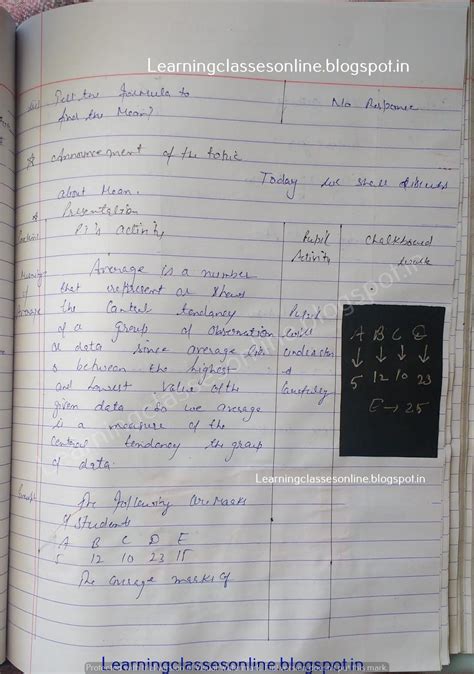 Learningclassesonline.blogspot.in
Tell the formula to
find the Mean?
No Response
Announcement of the topic
Today we shall discuss
about Mean.
Presentation
P.T's activity
Pupil
Activity
Chalkboard
work
Average is a number
that represent or shows
the Central tendancy
of a group of observation
or data since average lies
between the highest
and lowest value of the
given data
we average
is a measure of the
central tendency the group
of data.
Pupil
will
A B C E
↓ ↓ ↓ ↓
5 12 10 23
E → 25
Learningclassesonline.blogspot.in
The following are Marks
of Students
A B C D E
5 12 10 23 15
The average marks of
Learningclassesonline.blogspot.in